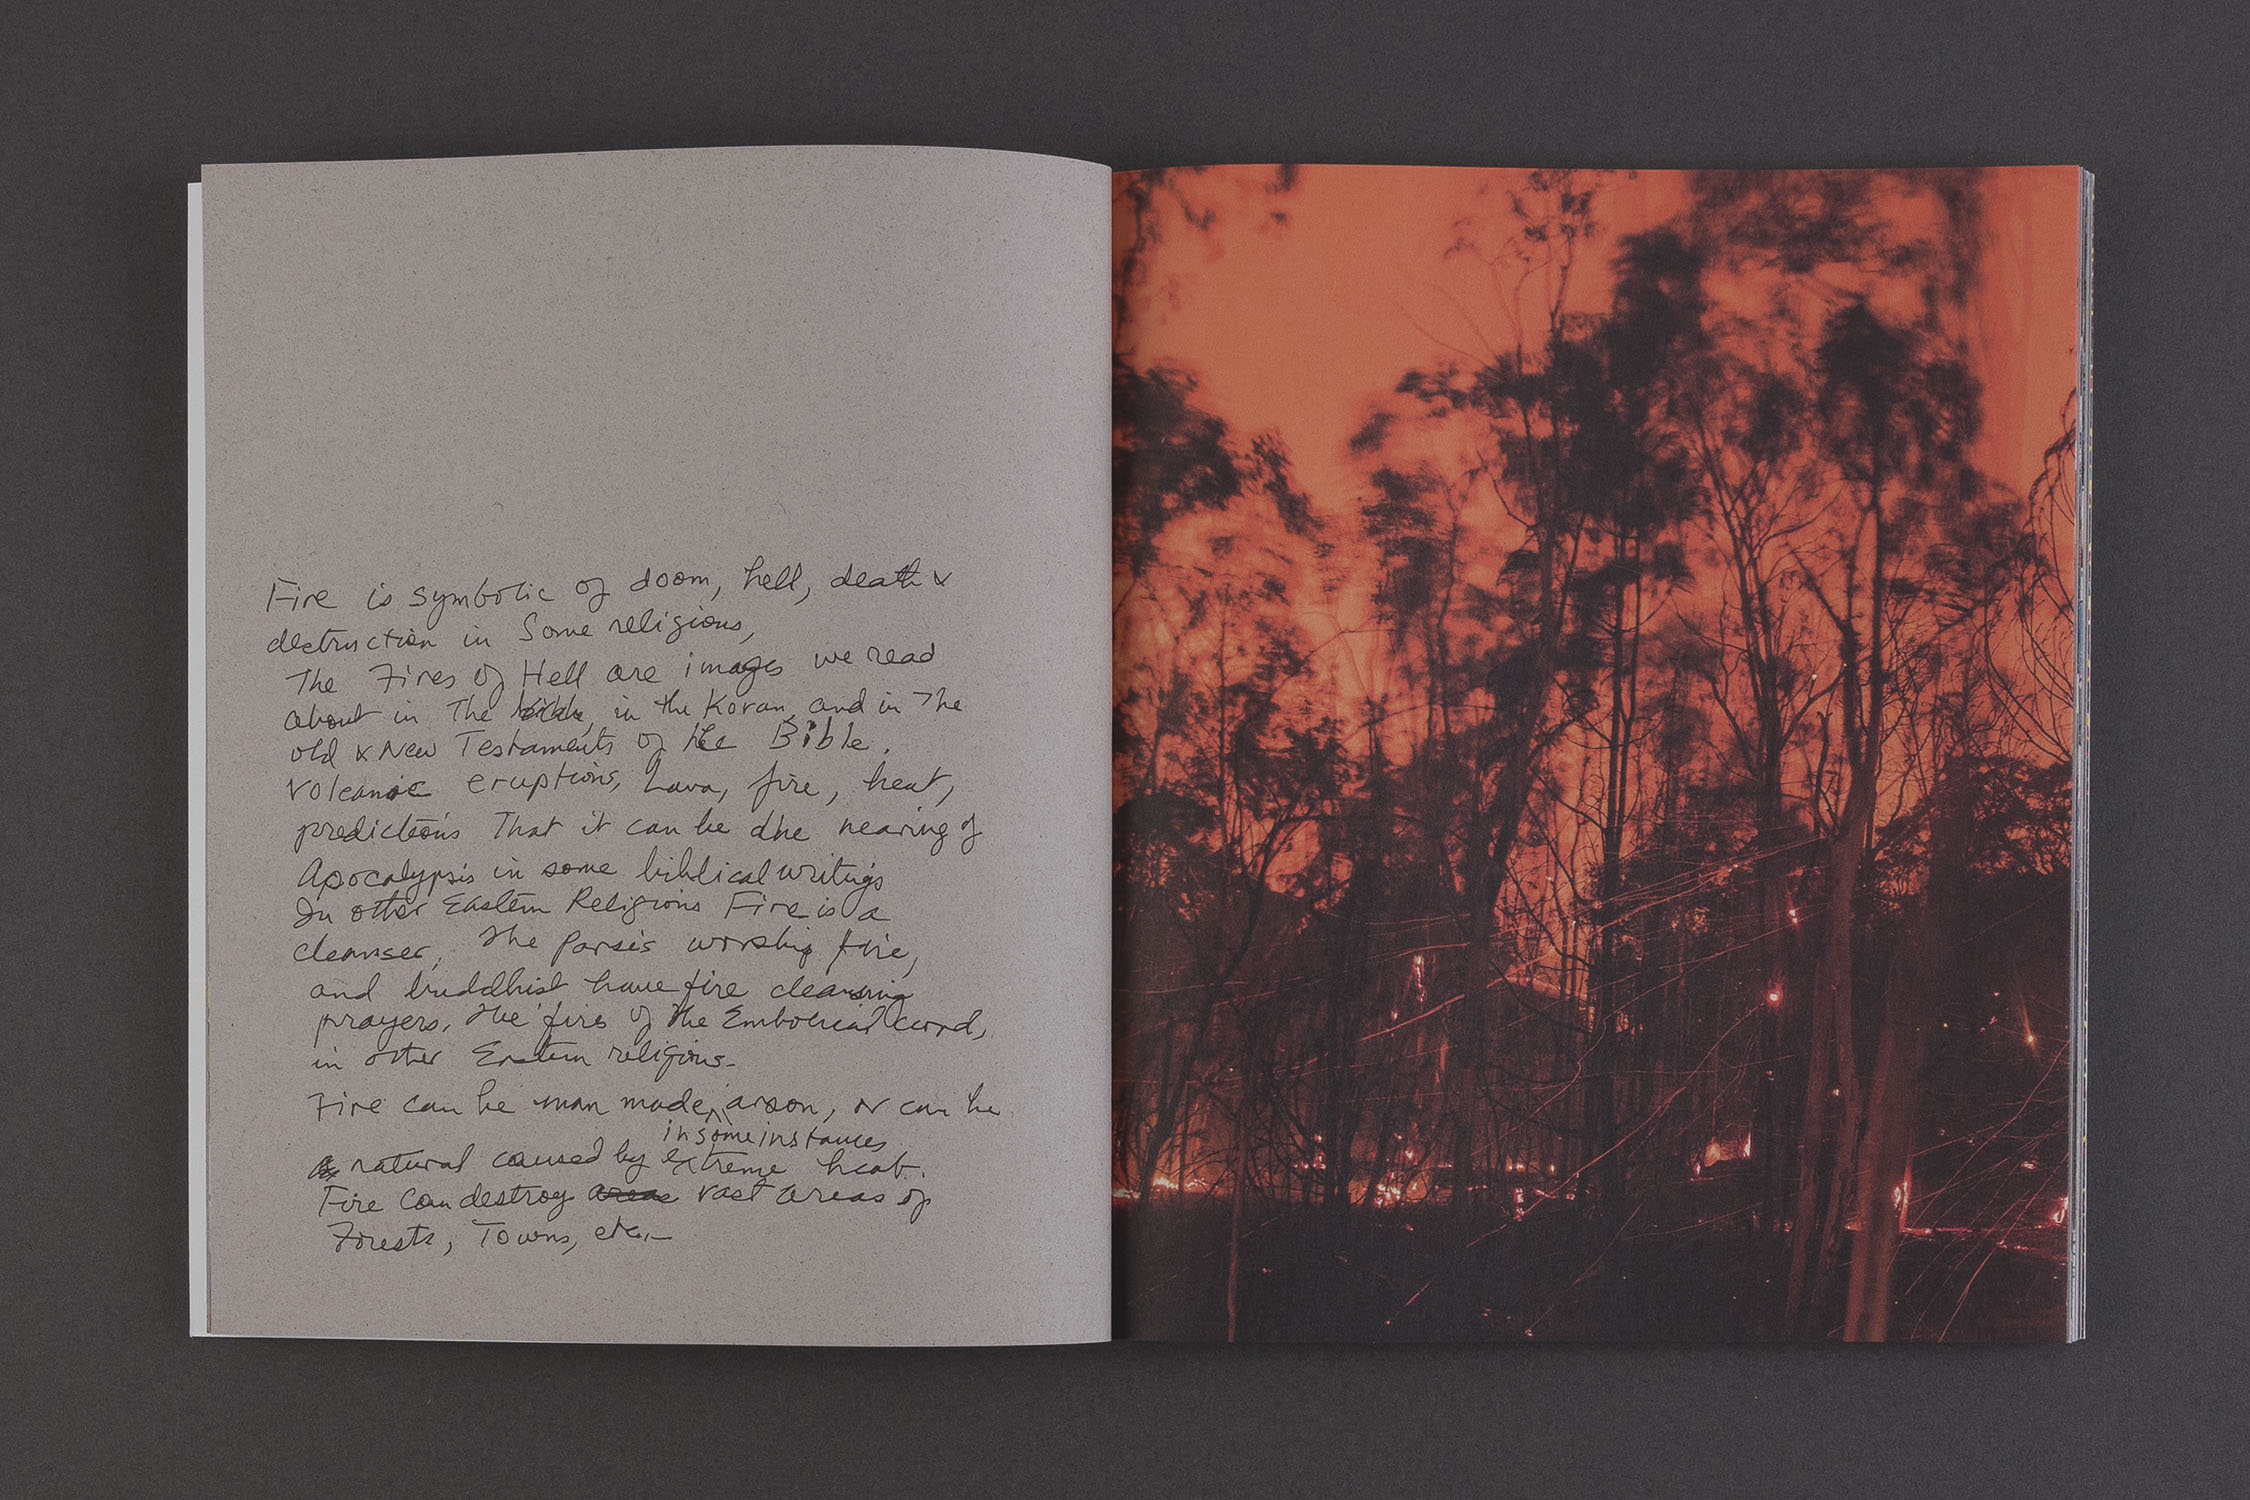 Fire is symbolic of doom, hell, death &
destruction in Some religions,
The Fires of Hell are images we read
about in The in the Koran, and in The
old & New Testaments of the Bible.
Volcanic eruptions, Lava, fire, heat,
predictions That it can be the nearing of
Apocalypsis in some biblical writings
In other Eastern Religions Fire is a
cleanser, The Parsis worship fire,
and buddhist have fire cleansing
prayers, the fire of the cord,
in other Eastern religions-
Fire can be man made, arson, or can be
in some instances
natural caused by extreme heat.
Fire can destroy vast areas of
Forests, Towns, etc.-